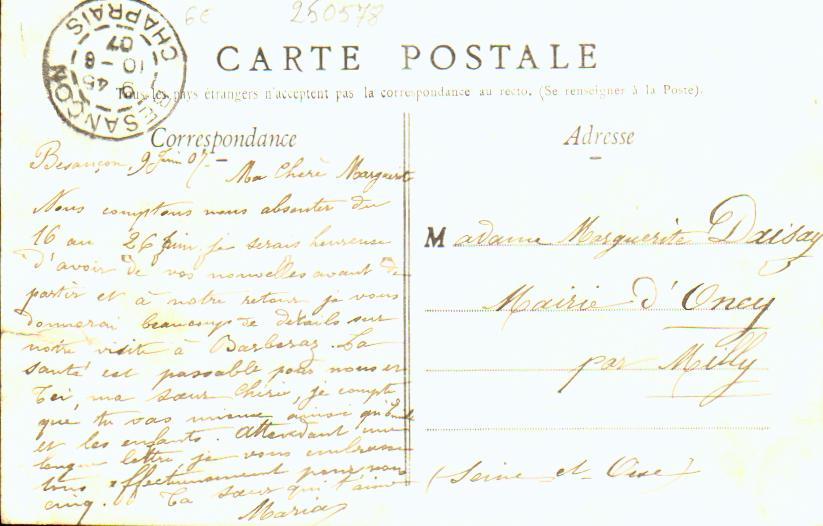 6E 250578
BESANÇON
CHAPRAIS
8 - 45
10 - 6
07
CARTE POSTALE
Tous les pays étrangers n'acceptent pas la correspondance au recto. (Se renseigner à la Poste).
Correspondance
Besançon, 9 Juin 07.
Ma Chère Marguerite
Nous comptons nous absenter du
16 au 26 Juin. je serais heureuse
d'avoir de vos nouvelles avant de
partir et à notre retour je vous
donnerai beaucoup de détails sur
notre visite à Barberaz. La
santé est passable pour nous et
Toi, ma sœur chérie, je compte
que tu vas mieux ainsi
et les enfants. Attendant une
longue lettre je vous embrasse
tous affectueusement pour nous
cinq. Ta sœur qui t'aime
Maria
Adresse
Madame Marguerite Daisay
Mairie d'Oncy
par Milly
(Seine et Oise)